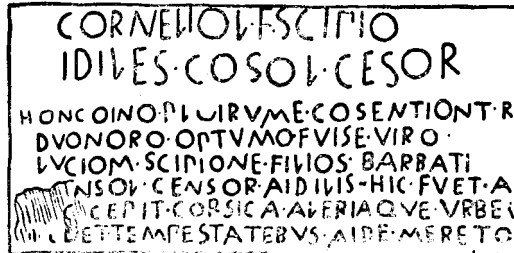 CORNELIO L·F·SCIPIO
IDILES·COSOL·CESOR
HONC OINO·PLOIRVME·COSENTIONT·R
DVONORO·OPTVMO·FVISE·VIRO·
LVCIOM·SCIPIONE·FILIOS·BARBATI
NSOL·CENSOR·AIDILIS·HIC·FVET·A
CEPIT·CORSICA·ALERIAQVE·VRBE
DET·TEMPESTATEBVS·AIDE·MERETO